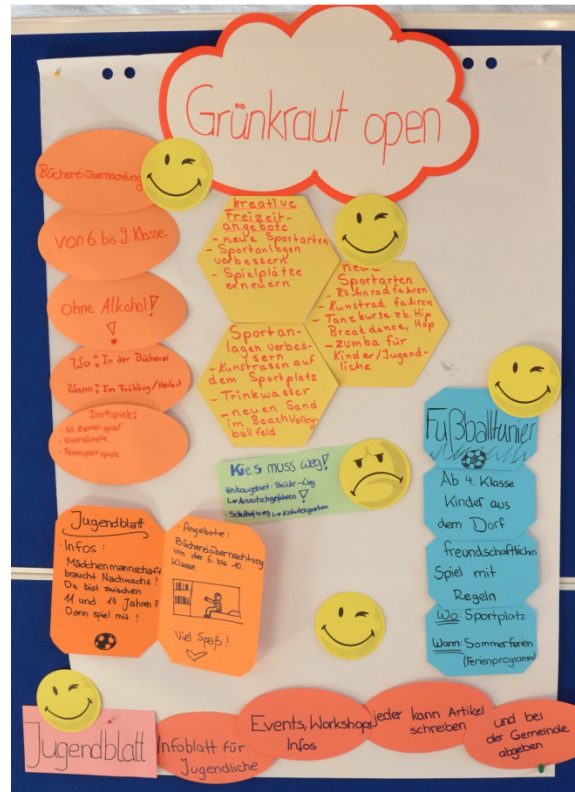 Grünkraut open
Büchereiübernachtung
von 6. bis 9. Klasse
Ohne Alkohol!
!
Wo: In der Bücherei
Wann: Im Frühling/Herbst
Dorfspiele:
- Wettkämpfe
- Teamsportspiele
kreative
Freizeit-
angebote
- neue Sportarten
- Sportanlagen
verbessern
- Spielplätze
erneuern
neue
Sportarten
- Röhnrad fahren
- Kunstrad fahren
- Tanzkurse zb. Hip
Breakdance, Hop
- zumba für
Kinder/Jugend-
liche
Sportan-
lagen verbes-
sern
- Kunstrasen auf
dem Sportplatz
- Trinkwasser
- neuen Sand
im Beachvolley-
ballfeld
Kies muss weg!
Neubaugebiet-Brücke-Weg
↳ Ausrutschgefahren!
Fußballtunier
Ab 4. Klasse
Kinder aus
dem Dorf
freundschaftliches
Spiel mit
Regeln
Wo: Sportplatz
Wann: Sommerferien
(Ferienprogramm)
Jugendblatt
· Infos:
Mädchenmannschaft
braucht Nachwuchs!
Du bist zwischen
11 und 14 Jahren?
Dann spiel mit!
· Angebote:
Büchereiübernachtung
von der 6. bis 10.
Klasse.
Viel Spaß!
Jugendblatt
Infoblatt für
Jugendliche
Events, Workshops
Infos
jeder kann Artikel
schreiben
und bei
der Gemeinde
abgeben